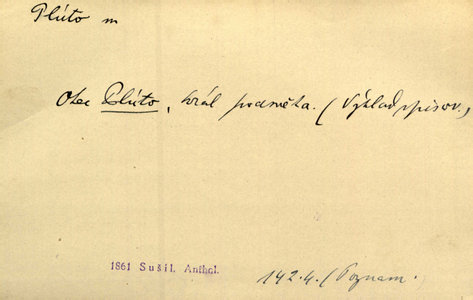 Plúto m
Otec Plúto, král podsvěta. (Výklad spisov.)
1861 Sušil. Anthol.
142.4. (Poznam.